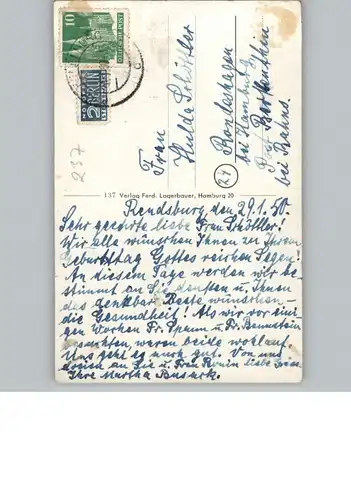 10
DEUTSCHE POST
NOTOPFER
2 BERLIN
STEUERMARKE
237
Frau
Hulda Schöttler
Rondeshagen
bei Hamburg
Post Berkenthin
bei Ratzb.
24
137 Verlag Ferd. Lagerbauer, Hamburg 20
Rendsburg, den 29.1.50.
Sehr geehrte liebe Frau Schöttler!
Wir alle wünschen Ihnen zu Ihrem
Geburtstag Gottes reichen Segen!
An diesem Tage werden wir be-
stimmt an Sie denken u. Ihnen
das denkbar Beste wünschen –
die Gesundheit! Als wir vor eini-
gen Wochen Fr. u. Fr. Bernstein
besuchten, waren beide wohlauf.
Uns geht es auch gut. Von uns
dreien an Sie u. Frau liebe Grüsse
Ihre Martha